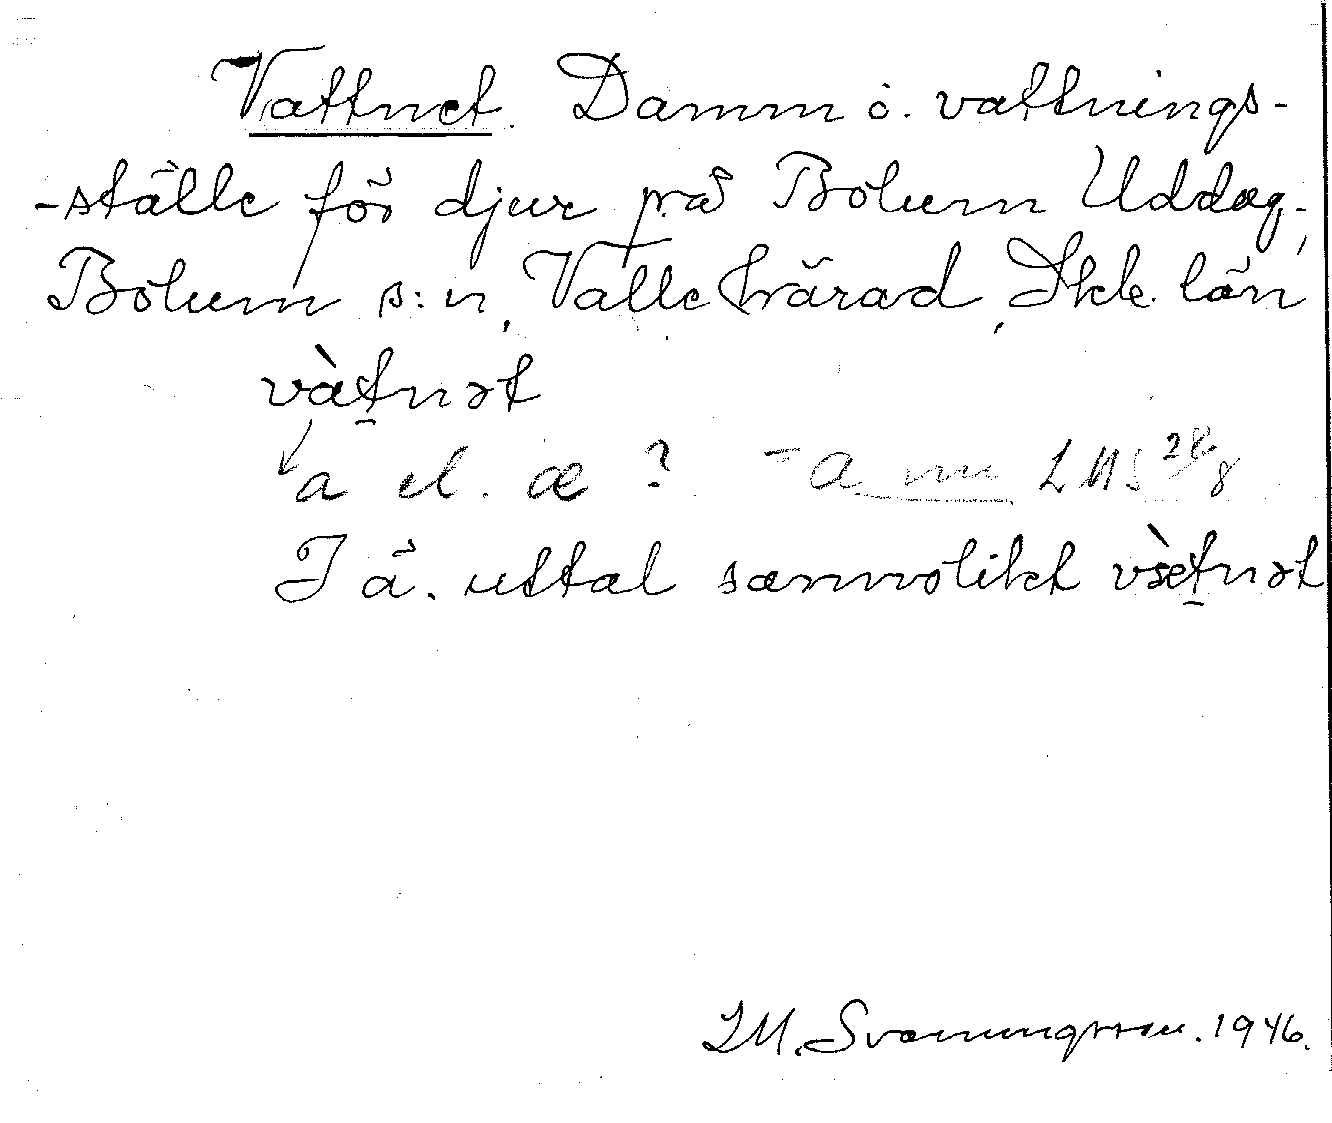 Vattnet. Damm o. vattnings-
-ställe för djur på Bolum Uddag,
Bolum s:n, Valle härad, Skb. län
vàt̯nət
a el. æ? = a LMS 28/8
I ä. uttal sannolikt væ̀t̯nət
I.M. Svanungsson. 1946.